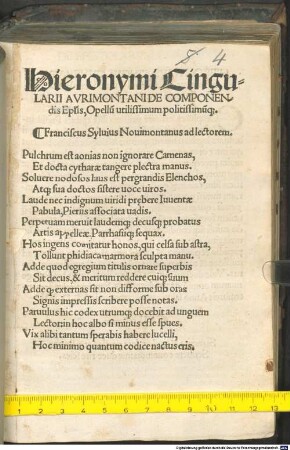 8 4
Hieronymi Cingu-
LARII AVRIMONTANI DE COMPONEN-
dis Eplis, Opellū utilissimum politissimūq;
¶Franciscus Syluius Nouimontanus ad lectorem.
Pulchrum est aonias non ignorare Camenas,
Et docta cytharæ tangere plectra manus.
Soluere nodosos laus est pergrandis Elenchos,
Atq; sua doctos sistere uoce uiros.
Laude nec indignum uiridi præbere Iuuentæ
Pabula, Pieriis associata uadis.
Perpetuam meruit laudemq; decusq; probatus
Artis apelleæ. Parrhasiiq; sequax.
Hos ingens comitatur honos, qui celsa sub astra,
Tollunt phidiaca marmora sculpta manu.
Adde quod egregium titulis ornare superbis
Sit decus, & meritum reddere cuiq; suum
Adde q; externas sit non difforme sub oras
Signis impressis scribere posse notas.
Paruulus hic codex utrumq; docebit ad unguem
Lectorin hoc albo si minus esse spues.
Vix alibi tantum sperabis habere lucelli,
Hoc minimo quantum codice nactus eris.
1 2 3 4 5 6 7 8 9 10 11 12 13